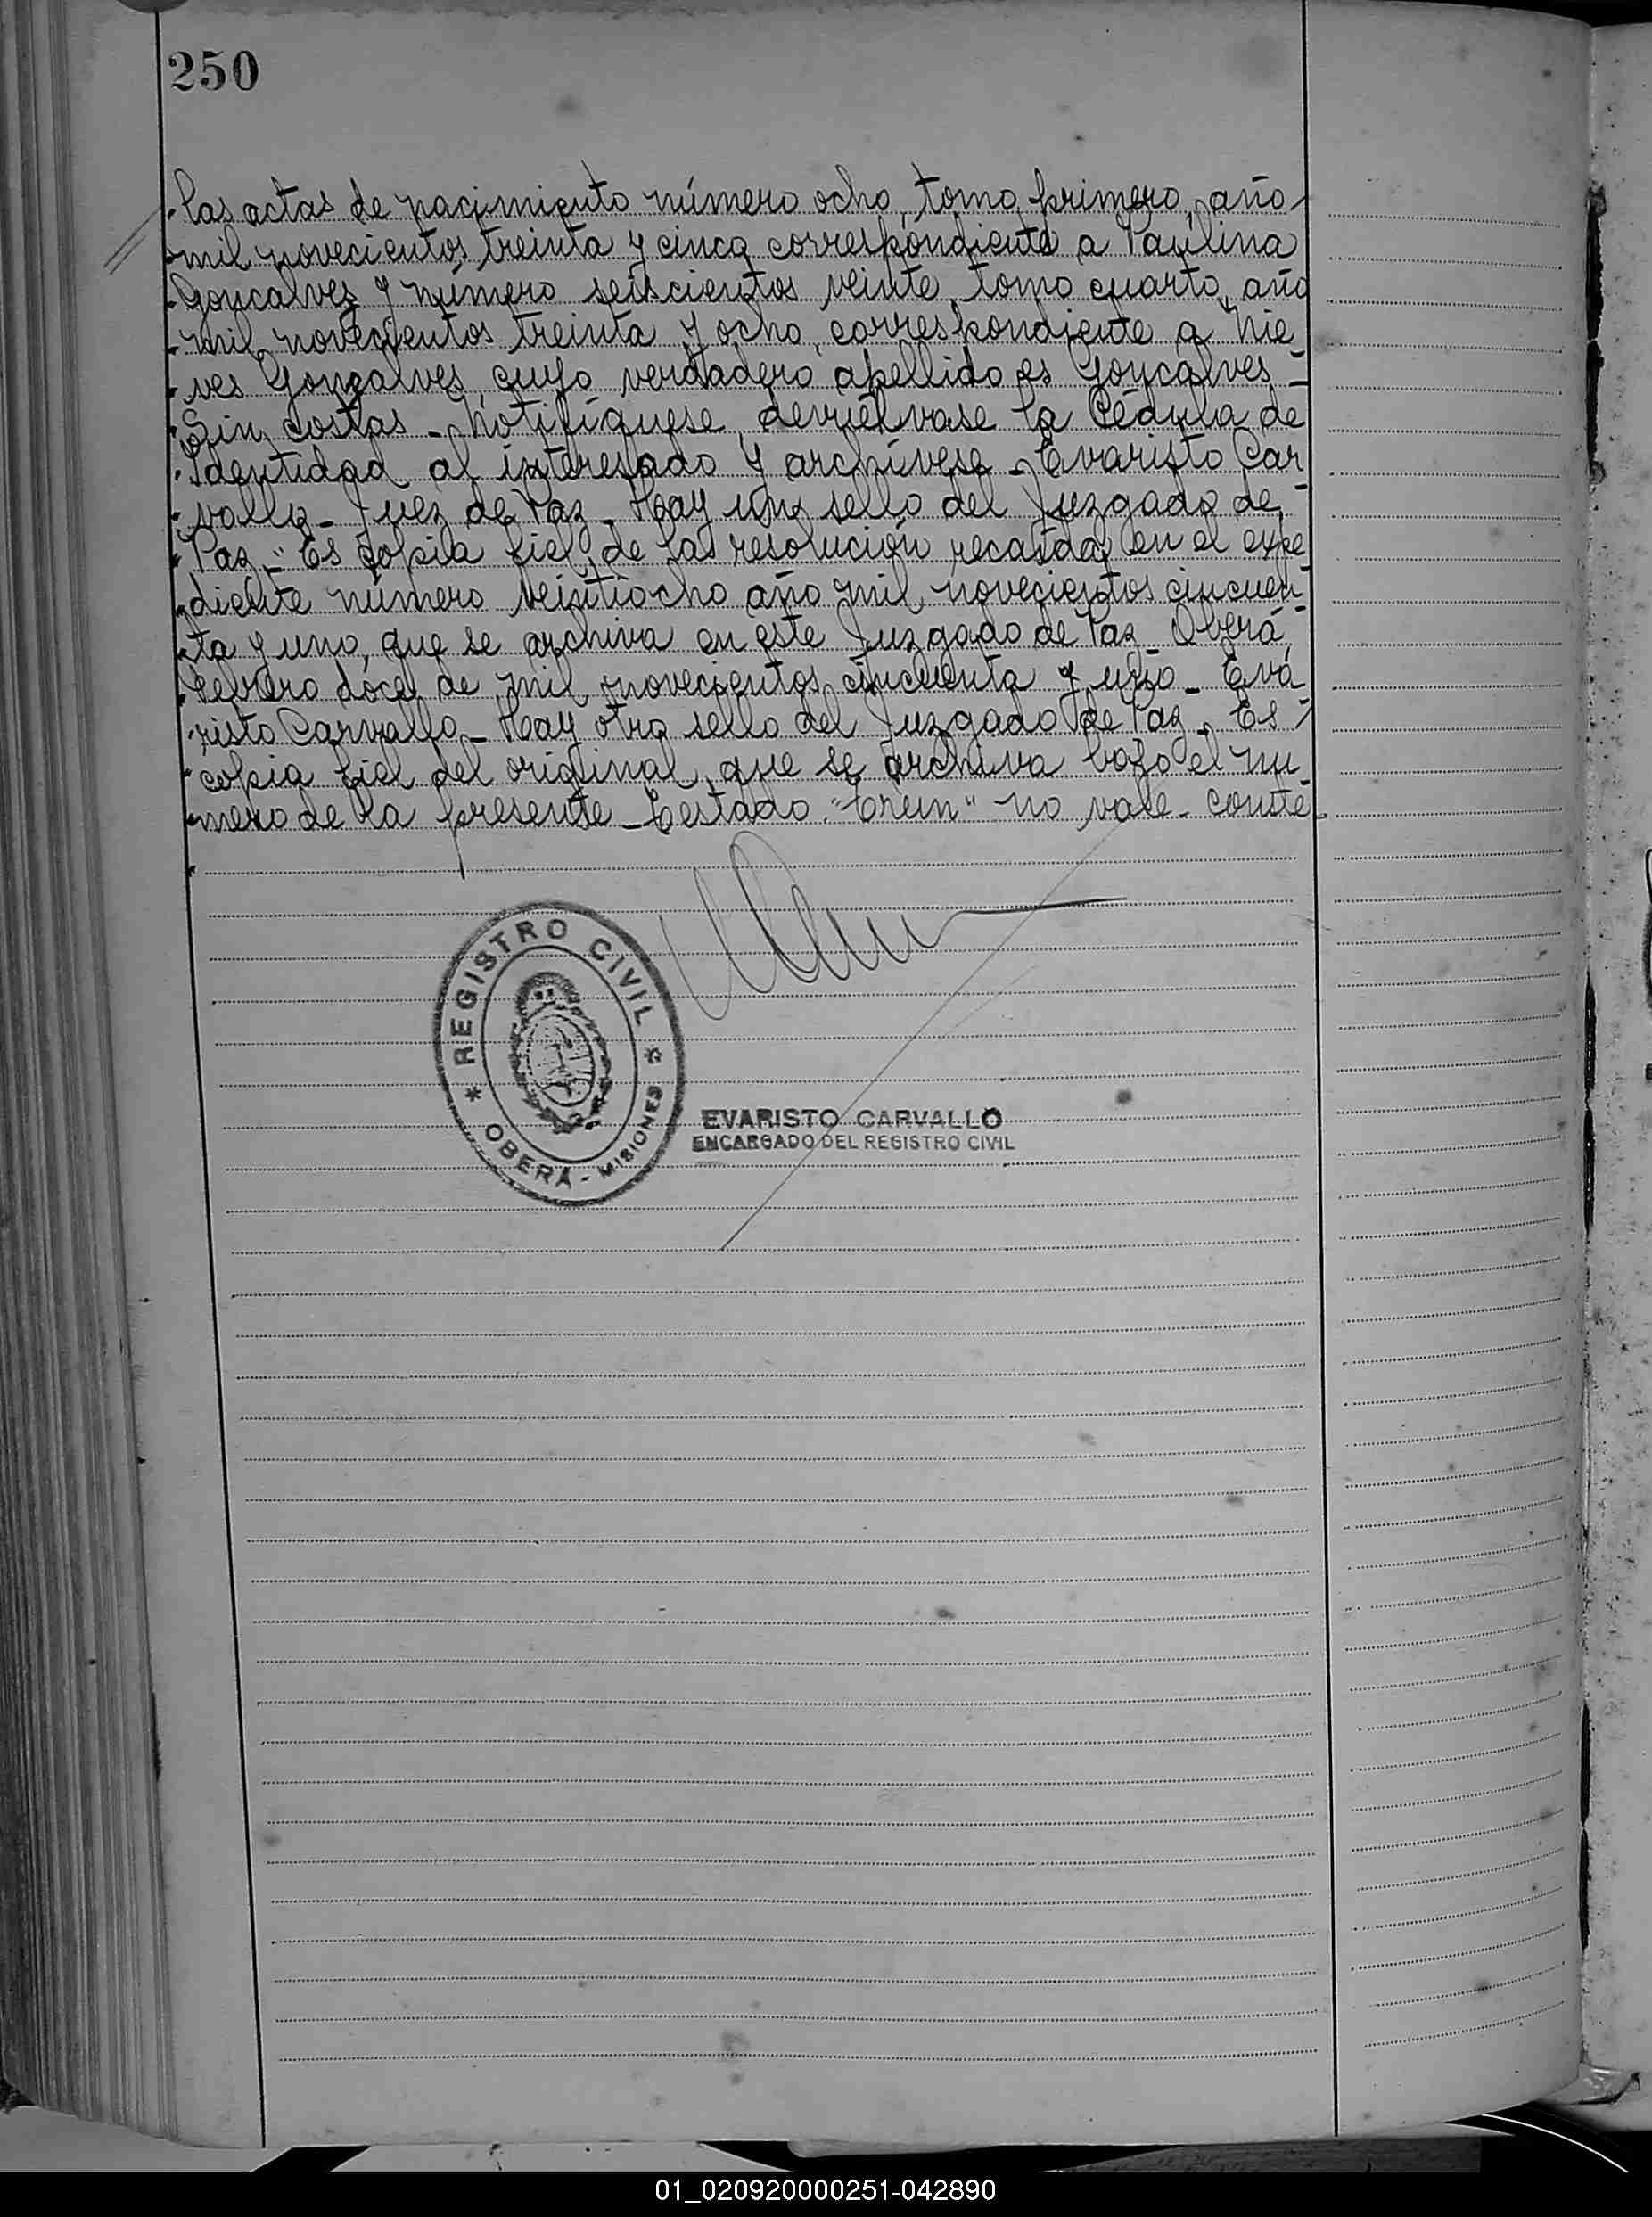 250
las actas de nacimiento número ocho, tomo primero, año
mil novecientos treinta y cinco correspondiente a Paulina
Goncalves y número seiscientos veinte, tomo cuarto, año
mil novecientos treinta y ocho, correspondiente a Nie
ves Gonzalves, cuyo verdadero apellido es Goncalves_
Sin costas_ Notifíquese, devuélvase la Cédula de
Identidad al interesado y archívese_ Evaristo Car
vallo_ Juez de Paz_ Hay un sello del Juzgado de
Paz_" Es copia fiel de las resolución recaida en el expe
diente número veintiocho año mil novecientos cincuen-
ta y uno, que se archiva en este Juzgado de Paz_ Oberá,
febrero doce de mil novecientos cincuenta y uno_ Eva
risto Carvallo_ Hay otro sello del Juzgado de Paz_ Es
copia fiel del original, que se archiva bajo el nú
mero de la presente_ Testado: no vale_ Conste_
REGISTRO CIVIL
OBERÁ - MISIONES
EVARISTO CARVALLO
ENCARGADO DEL REGISTRO CIVIL
01_020920000251-042890